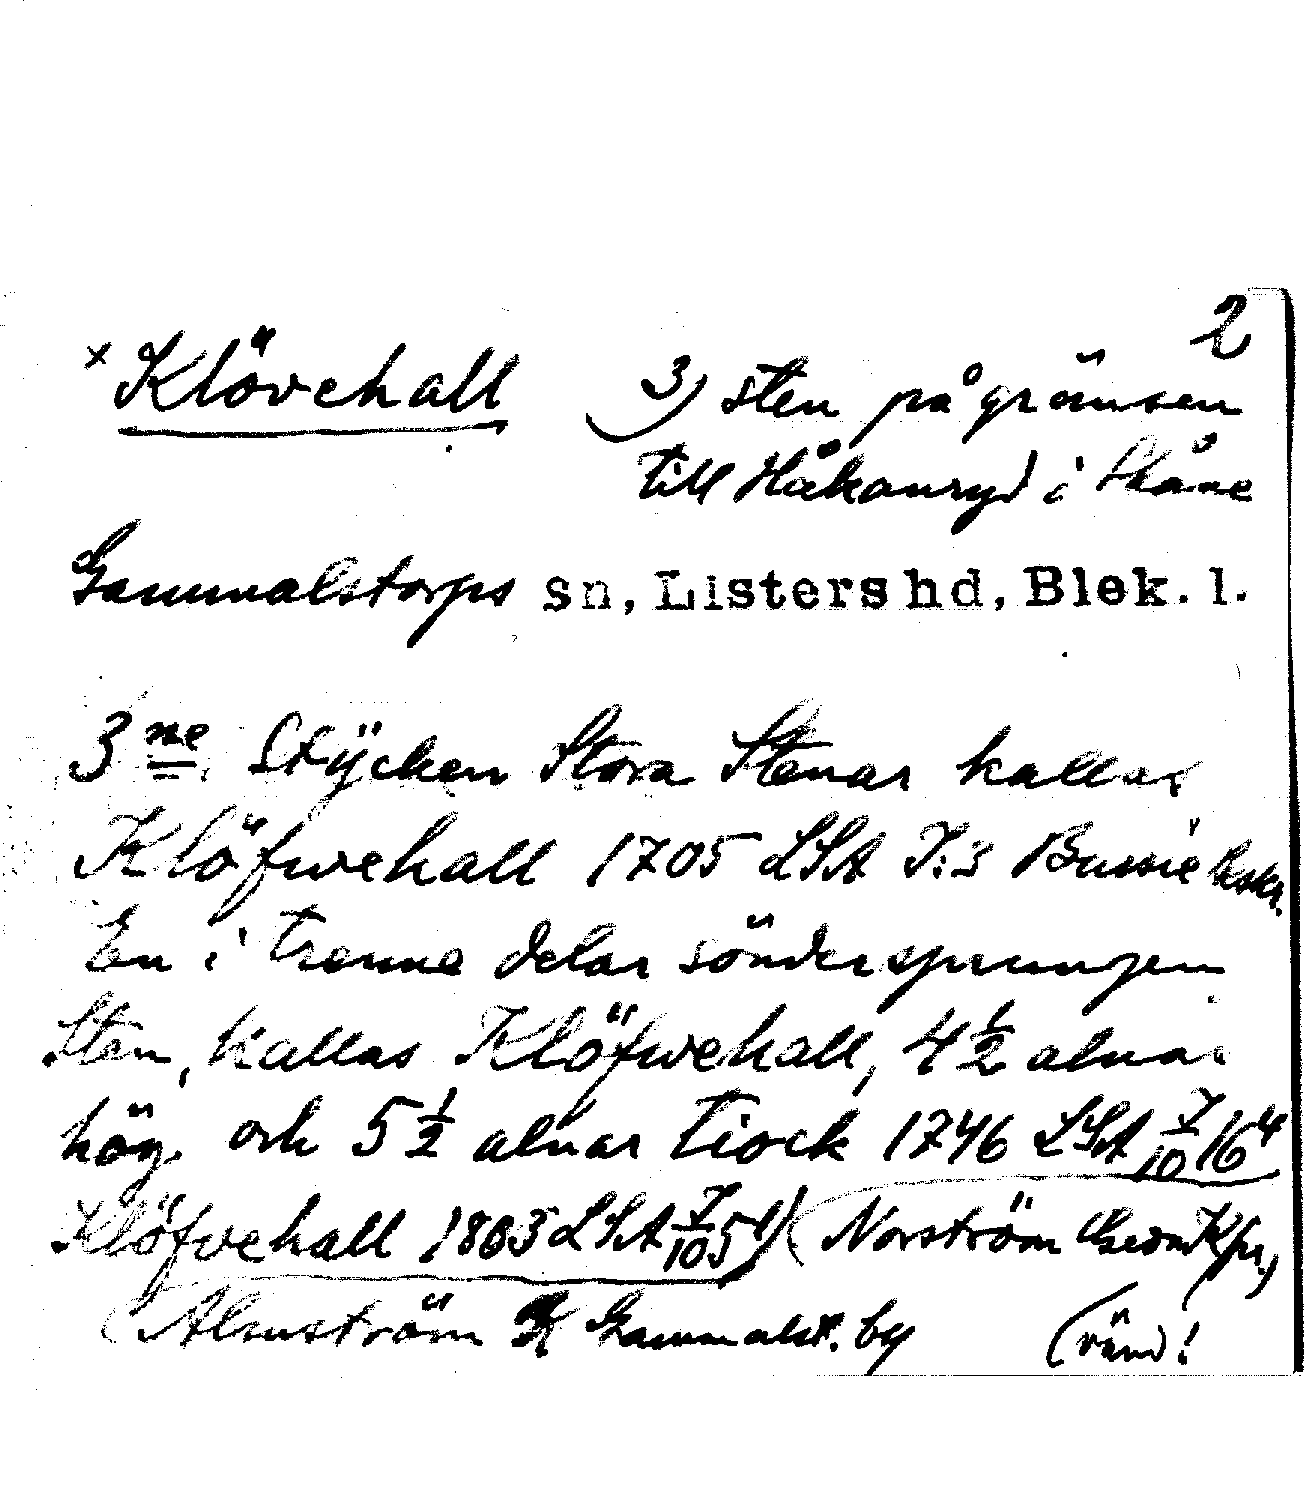 2
× Klövehall 3) sten på gränsen
till Håkanryd i Skåne
Gammalstorps sn, Listers hd, Blek. l.
3ne Stÿcken Stora Stenar kallas
Klöfwehall 1705 LSA J:s Bussie Beskr.
En i trenne delar söndersprungen
Sten, kallas Klöfwehall, 4 1/2 alnar
hög. och 5 1/2 alnar tiock 1746 LSA J/10 16 4
Klöfvehall 1803 LSA J/10 5 1) (Norström
(Almström K Gammalst. by (vänd!